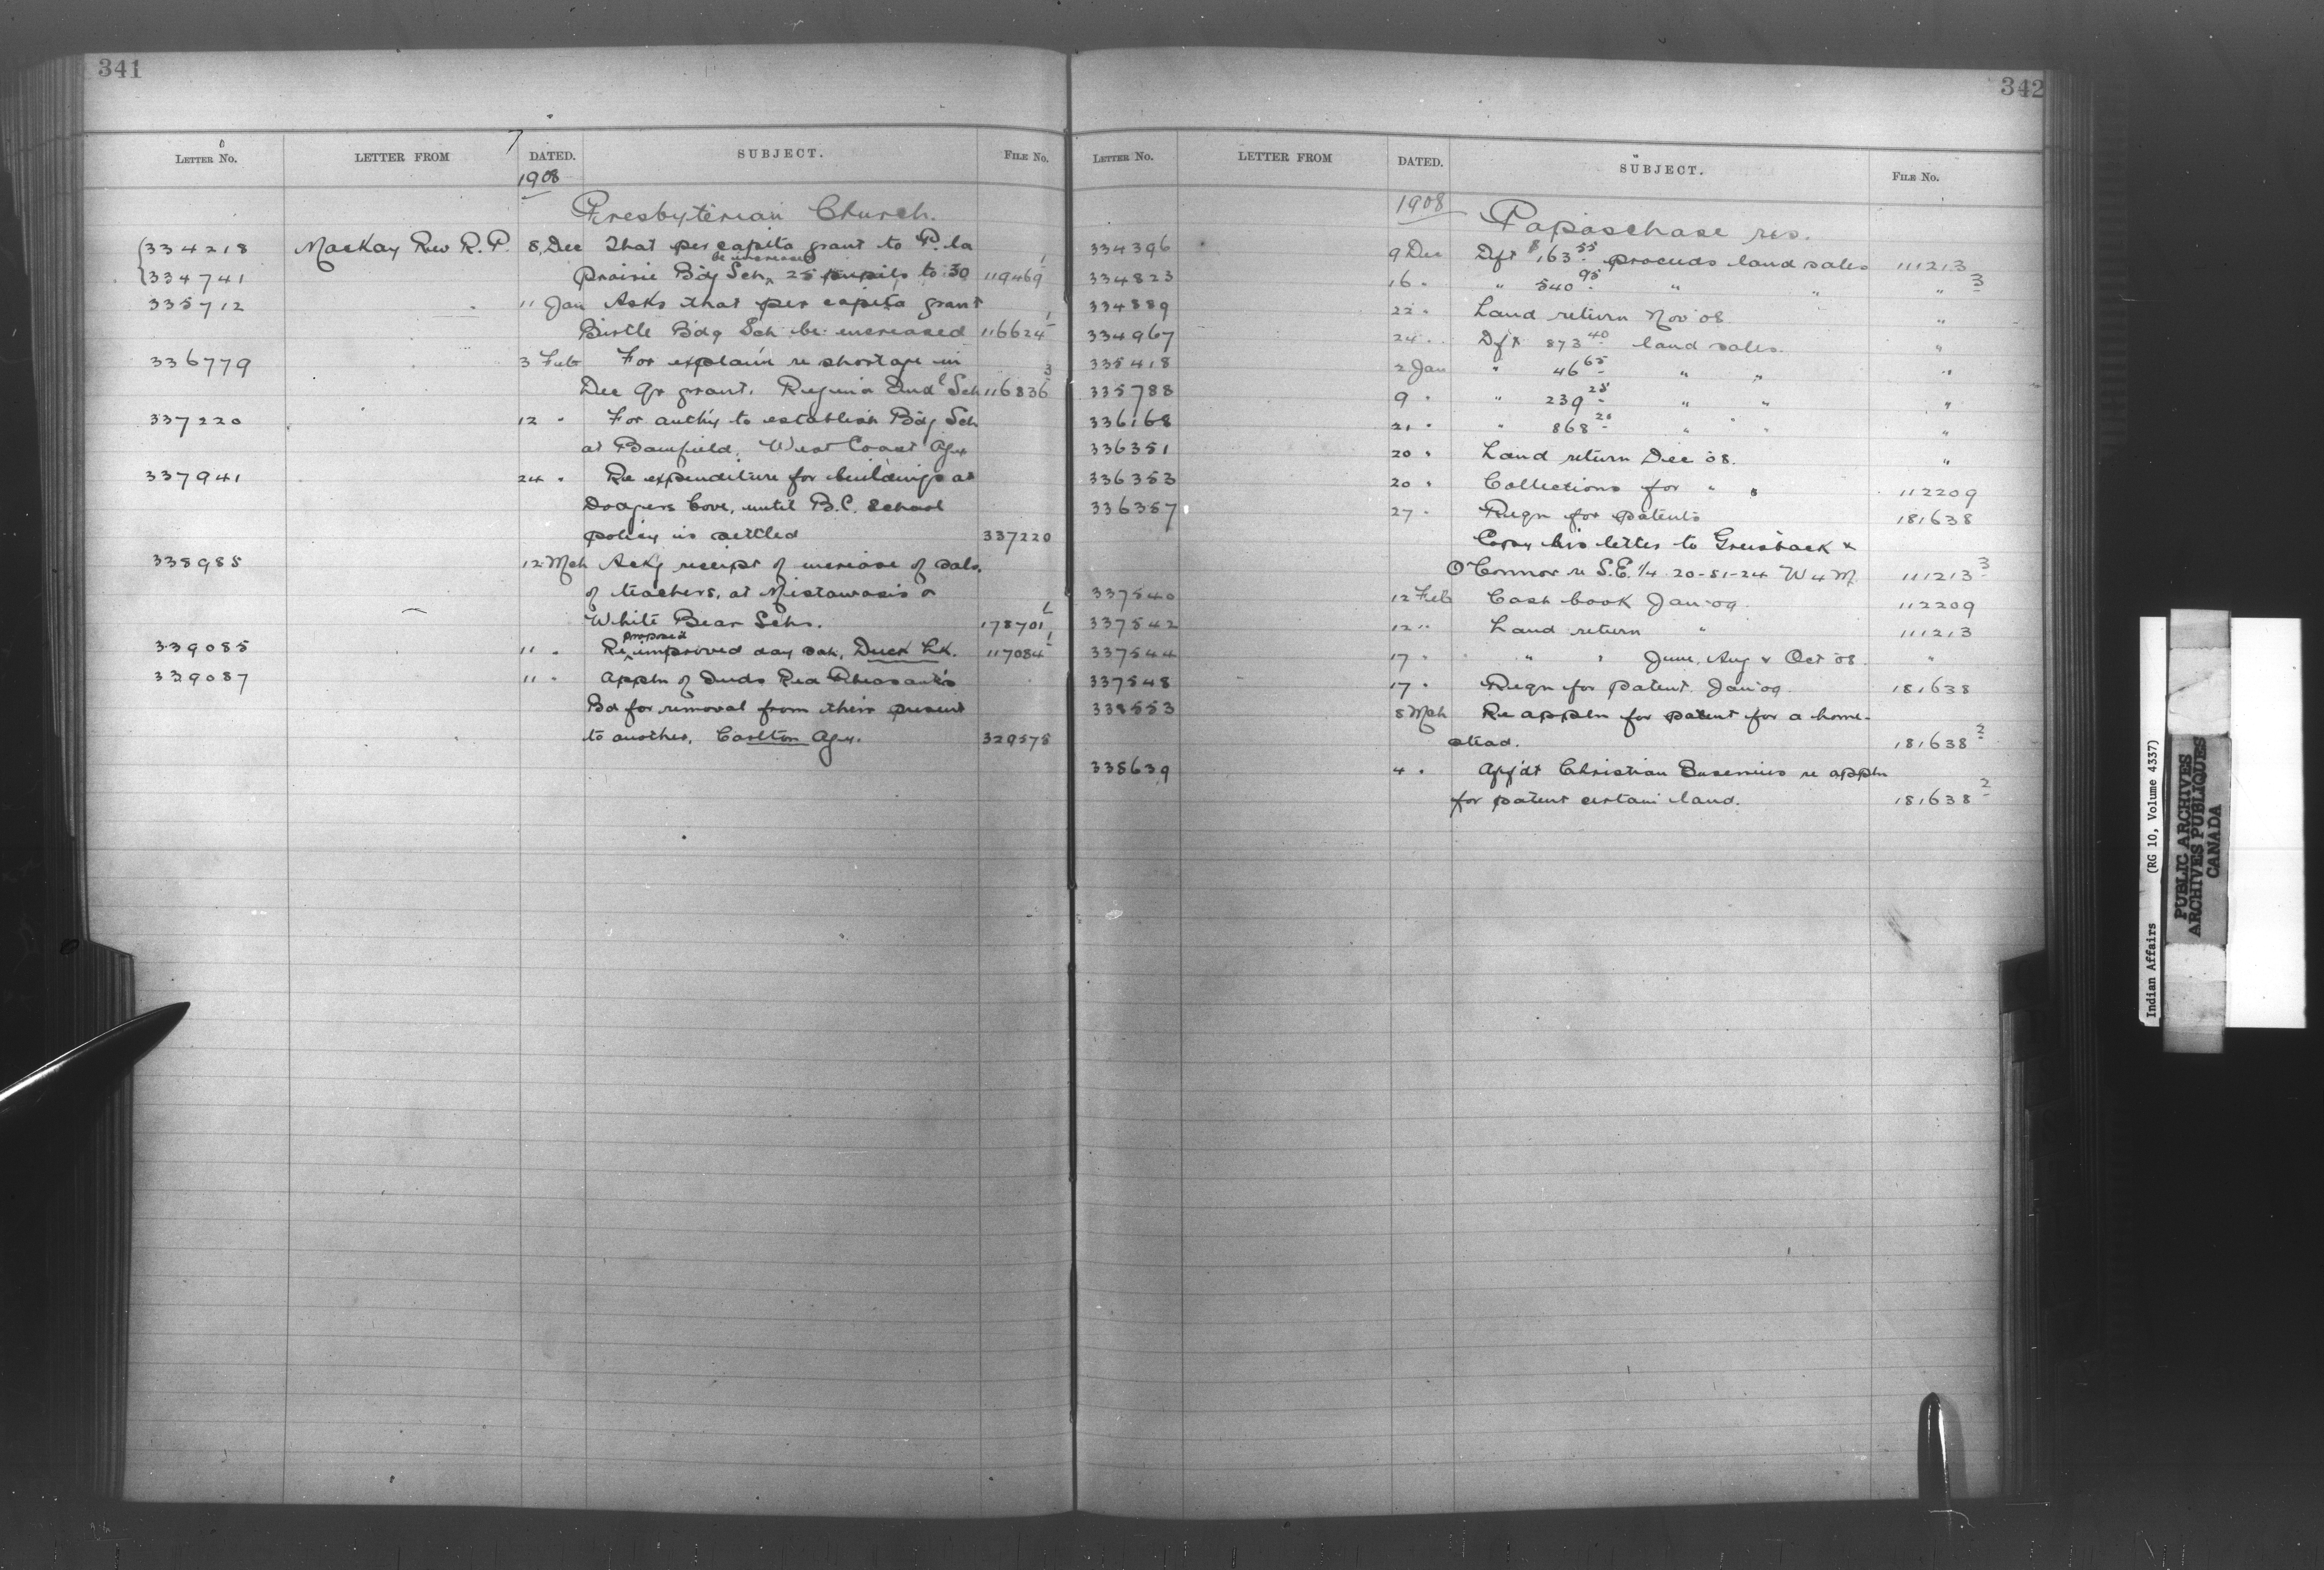 341
LETTER NO. LETTER FROM DATED. SUBJECT. FILE NO.
1908
Presbyterian Church.
334218 MacKay Rev R. P. 8 Dec That per capita grant to P. la
be increased
334741 Prairie Bdg Sch, 25 pupils to 30 119469 1
335712 " 11 Jan Asks that per capita grant
Birtle Bdg Sch be increased 116624 1
336779 3 Feb For explan re shortage in
Dec qr grant. Regina Indl Sch 116836 3
337220 12 " For authy to establish Bdg Sch
at Bamfield, West Coast Agy
337941 24 " Re expenditure for buildings at
Dodgers Cove, until B.C. School
policy is settled 337220
338985 12 Mch Ackg receipt of increase of sals.
of teachers, at Mistawasis &
White Bear Schs. 178701 1
proposed
339085 11 " Re improved day sch, Duck Lk. 117084 1
339087 11 " Appln of Inds Red Pheasant's
Bd for removal from their present
to another, Carlton Agy. 329578
342
LETTER NO. LETTER FROM DATED. SUBJECT. FILE NO.
1908
Papaschase res.
334396 9 Dec Dft $163.55 proceeds land sales 111213 3
334823 16 " " 540.95 " " "
334889 22 " Land return Nov '08 "
334967 24 " Dft 873.40 land sales. "
335418 2 Jan " 46.65 " " "
335788 9 " " 239.25 " " "
336168 21 " " 868.20 " " "
336351 20 " Land return Dec '08. "
336353 20 " Collections for " " 112209
336357 27 " Reqn for patents 181638
Copy his letter to Griesback &
O'Connor re S.E. 1/4 20-51-24 W 4 M. 111213 3
337540 12 Feb Cash book Jan '09. 112209
337542 12 " Land return " 111213
337544 17 " " " June, Aug & Oct '08. "
337548 17 " Reqn for patent Jan '09. 181638
338553 8 Mch Re appln for patent for a home-
stead. 181638 2
338639 4 " Aff'dt Christian re appln
for patent certain land. 181638 2
Indian Affairs (RG 10, Volume 4337)
PUBLIC ARCHIVES
ARCHIVES PUBLIQUES
CANADA